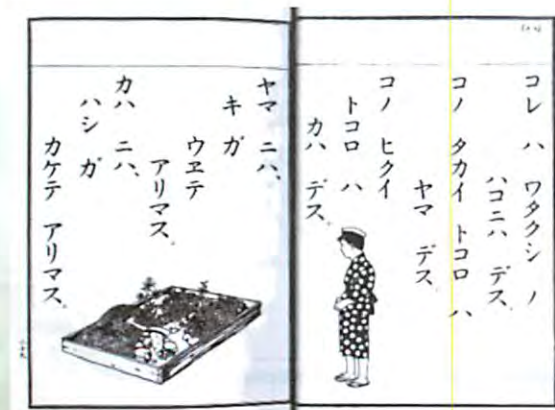 コレ ハ ワタクシ ノ
ハコニハ デス、
コノ タカイ トコロ ハ
ヤマ デス、
コノ ヒクイ
トコロ ハ
カハ デス、
ヤマ ニハ、
キ ガ
ウヱテ
アリマス、
カハ ニハ、
ハシ ガ
カケテ アリマス、